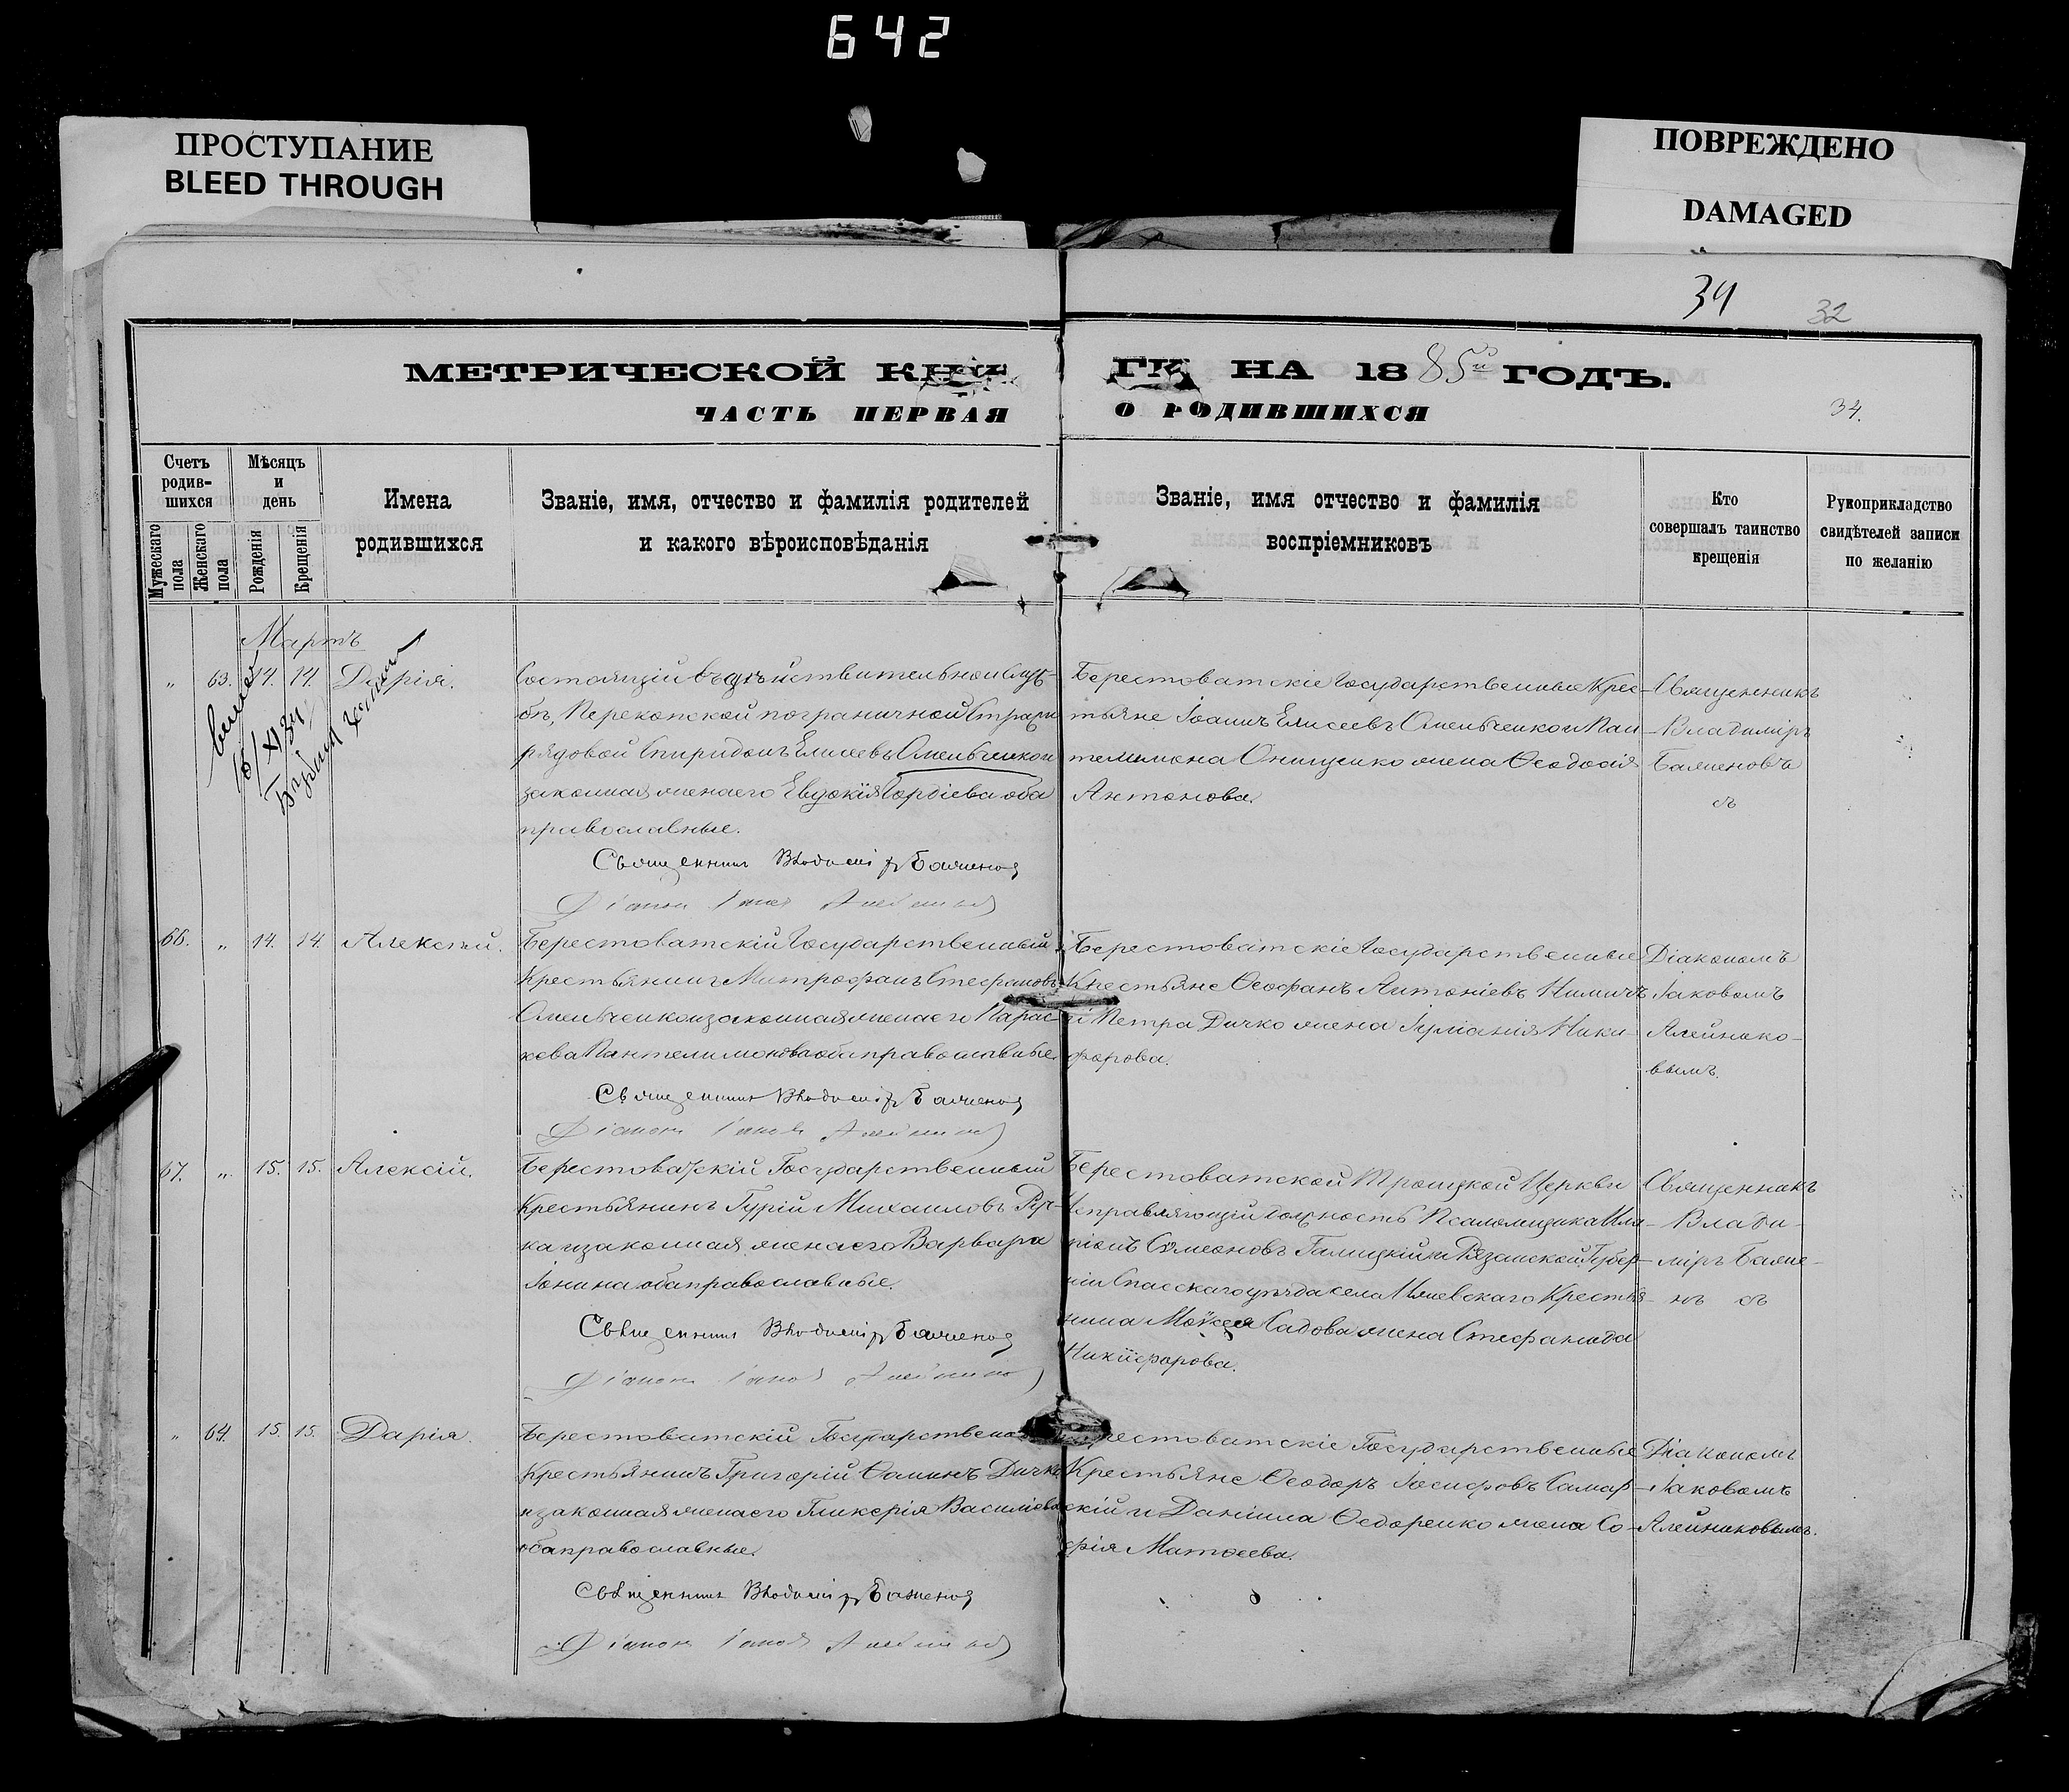 642
ПРОСТУПАНИЕ
BLEED THROUGH
ПОВРЕЖДЕНО
DAMAGED
34
32
МЕТРИЧЕСКОЙ КНИ ГИ НА 1885й ГОДЪ.
ЧАСТЬ ПЕРВАЯ О РОДИВШИХСЯ
34.
Счетъ родив-шихся
Мужескаго пола
Женскаго пола
Мѣсяцъ и день
Рожденія
Крещенія
Имена родившихся
Званіе, имя, отчество и фамилія родителей
и какого вѣроисповѣданія
Званіе, имя отчество и фамилія
воспріемниковъ
Кто
совершалъ таинство
крещенія
Рукоприкладство
свидѣтелей записи
по желанію
Мартъ
„ 63. 14. 14. Дарія.
16/XI 34
Состоящій въ дѣйствительной служ-
бѣ, Перекопской пограничной Стражи
рядовой Спиридонъ Елисеевъ Омельченко и
законная жена его Евдокія Гордіева оба
православные.
Священникъ Владиміръ Баженов
Діаконъ Іаков Алейников
Берестоватскіе Государственные Крес-
тьяне Іоаннъ Елисеевъ Омельченко и Пан
телимона Онищенко жена Ѳеодосія
Антонова.
Священникъ
Владиміръ
Баженовъ
съ
66. „ 14. 14. Алексѣй.
Берестоватскій Государственный
Крестьянинъ Митрофанъ Стефановъ
Омельченко и законная жена его Парас-
кева Пантелимонова оба православные.
Священникъ Владиміръ Баженов
Діаконъ Іаковъ Алейников
Берестоватскіе Государственные
Крестьяне Ѳеофанъ Антоніевъ
и Петра Дичко жена Іуліанія Ники-
форова.
Діакономъ
Іаковомъ
Алейнико-
вымъ.
67. „ 15. 15. Алексій.
Берестоватскій Государственный
Крестьянинъ Гурій Михаиловъ
ка и законная жена его Варвара
Іонина оба православные.
Священникъ Владиміръ Баженов
Діаконъ Іаков Алейников
Берестоватской Троицкой Церкви
Исправляющій должность Псаломщика Ила-
ріонъ Симеоновъ Галицкій и Рязанской Губер-
ніи Спасскаго уѣзда села Крестья
нина Моѵсея Садова жена Стефанида
Никифорова.
Священникъ
Влади-
міръ Баже-
нъ съ
„ 64. 15. 15. Дарія.
Берестоватскій Государствен
Крестьянинъ Григорій Ѳоминъ Дичко
и законная жена его Гликерія Василіева
оба православные.
Священникъ Владиміръ Баженов
Діаконъ Іаков Алейников
рестоватскіе Государственные
Крестьяне Ѳеодоръ Іосифовъ Самар-
скій и Даніила Ѳедоренко жена Со-
фія Матѳеева.
Діакономъ
Іаковомъ
Алейниковымъ.